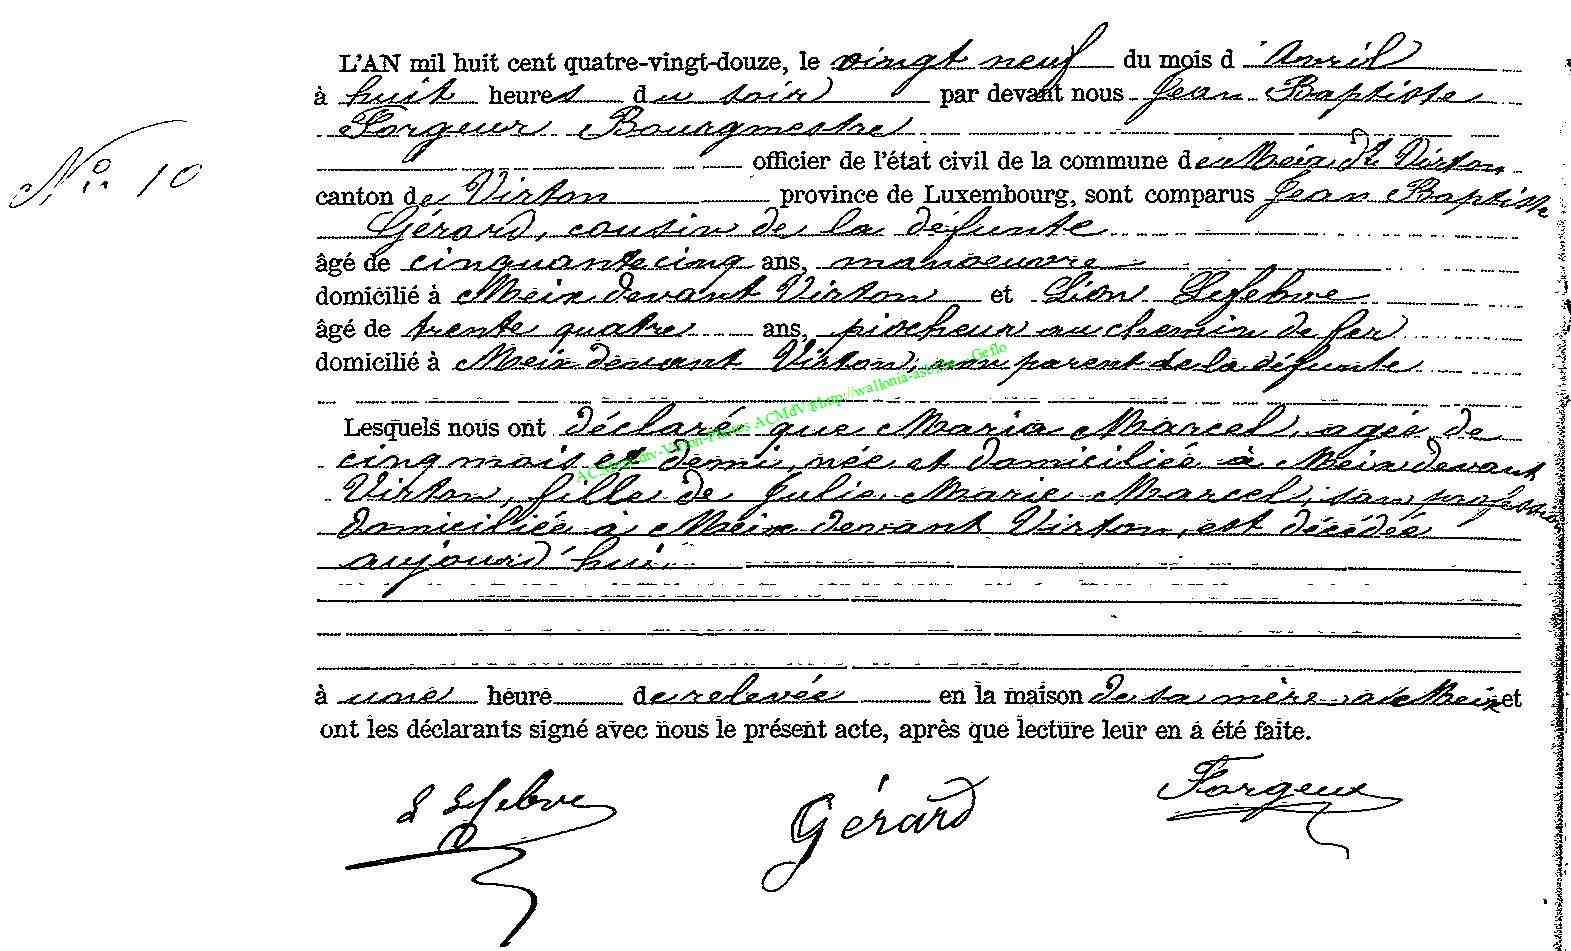 L'AN mil huit cent quatre-vingt-douze, le vingt neuf du mois d'Avril
à huit heures du soir par devant nous Jean Baptiste
Forgeur Bourgmestre
N° 10
officier de l'état civil de la commune de Meix dt Virton
canton de Virton province de Luxembourg, sont comparus Jean Baptiste
Gérard, cousin de la défunte
âgé de cinquante cinq ans, manoeuvre
domicilié à Meix devant Virton et Léon Lefebvre
âgé de trente quatre ans, piocheur au chemin de fer
domicilié à Meix devant Virton, non parent de la défunte
Lesquels nous ont déclaré que Maria Marcel, agée de
cinq mois et demi, née et domiciliée à Meix devant
Virton, fille de Julie Marie Marcel, san profession
domiciliée à Meix devant Virton, est décédée
aujourd'hui
à une heure de relevée en la maison de sa mère à Meix et
ont les déclarants signé avec nous le présent acte, après que lecture leur en a été faite.
L Lefebvre Gérard Forgeur